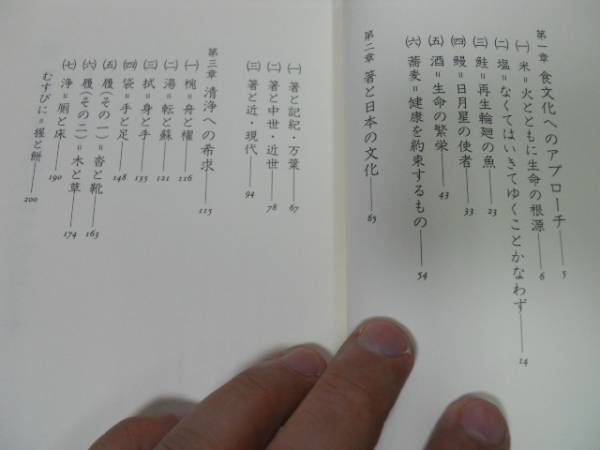 第一章 食文化へのアプローチ――5
㈠ 米＝火とともに生命の根源――6
㈡ 塩＝なくてはいきてゆくことかなわず――14
㈢ 鮭＝再生輪廻の魚――23
㈣ 鰻＝日月星の使者――33
㈤ 酒＝生命の繁栄――43
㈥ 蕎麦＝健康を約束するもの――54
第二章 箸と日本の文化――65
㈠ 箸と記紀・万葉――67
㈡ 箸と中世・近世――78
㈢ 箸と近・現代――94
第三章 清浄への希求――115
㈠ 椀＝舟と櫂――116
㈡ 湯＝転と蘇――121
㈢ 拭＝身と手――135
㈣ 袋＝手と足――148
㈤ 履（その一）＝沓と靴――163
㈥ 履（その二）＝木と草――174
㈦ 浄＝厠と床――190
むすびに＝握と餅――200